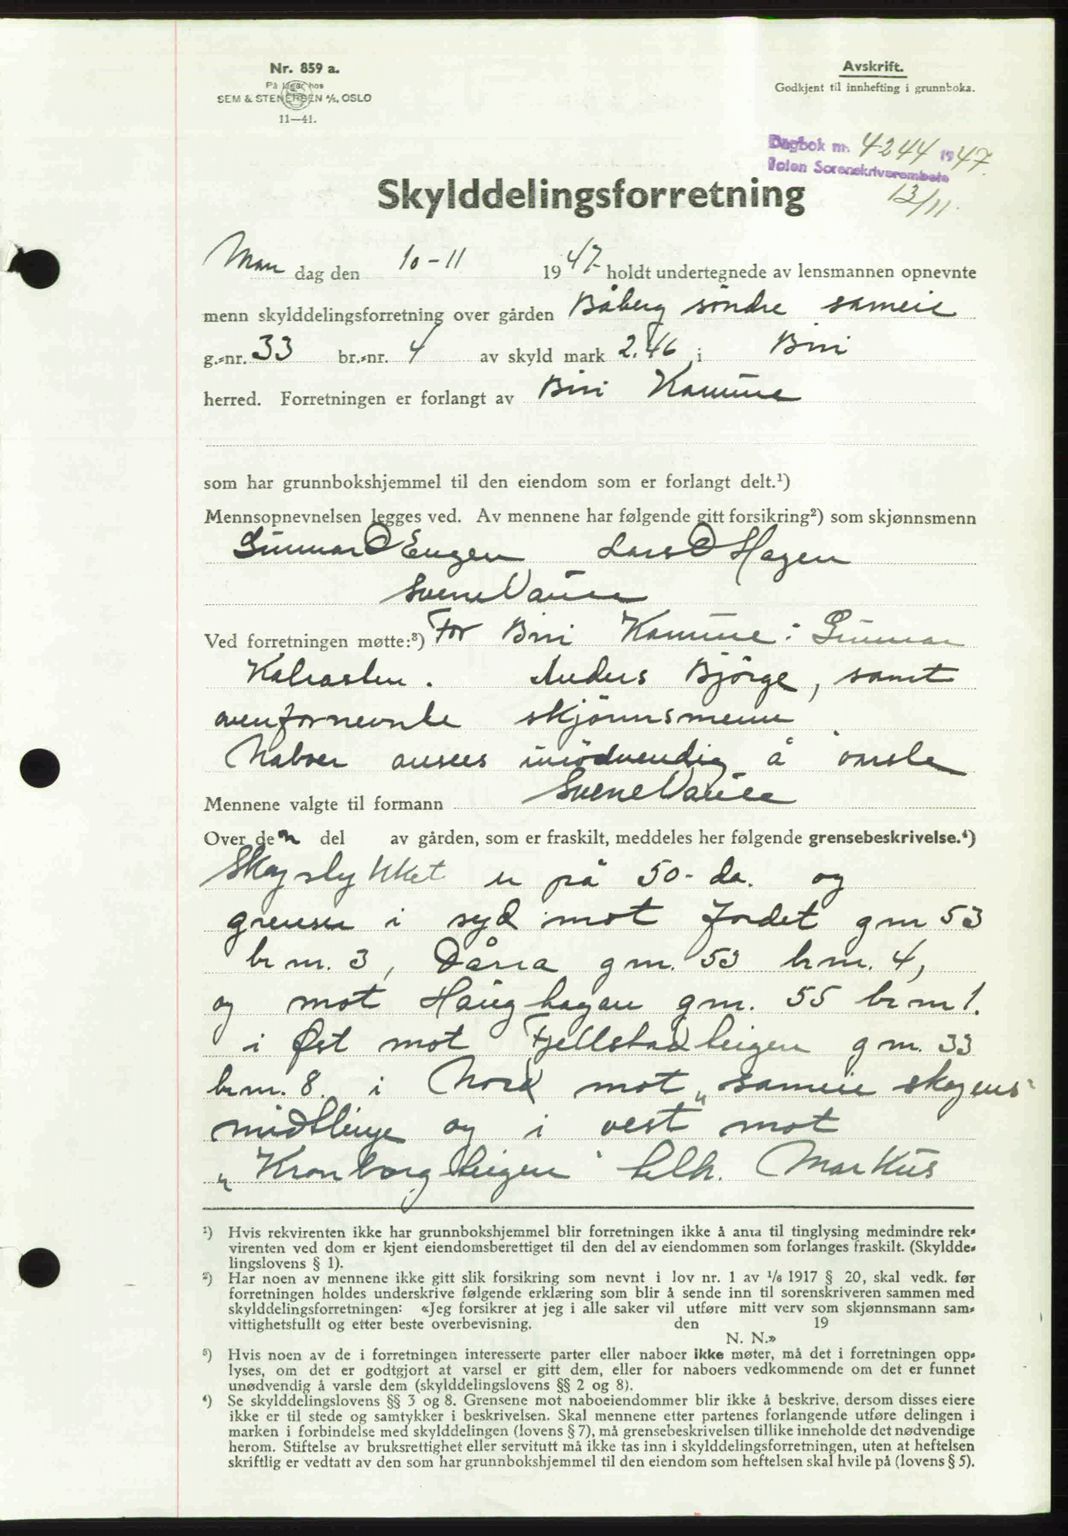 Nr. 859 a.
På lager hos
SEM & STENERSEN A/S, OSLO
11—41.
Avskrift.
Godkjent til innhefting i grunnboka.
Dagbok nr. 4244 1947.
Toten Sorenskriverembete
13/11.
Skylddelingsforretning
Man dag den 10-11 1947 holdt undertegnede av lensmannen opnevnte
menn skylddelingsforretning over gården Båberg söndre sameie
g.-nr. 33 br.-nr. 4 av skyld mark 2.46 i Biri
herred. Forretningen er forlangt av Biri Komune
som har grunnbokshjemmel til den eiendom som er forlangt delt.¹)
Mennsopnevnelsen legges ved. Av mennene har følgende gitt forsikring²) som skjønnsmenn
Gunnar O Engen Lars O Hagen
Svene
Ved forretningen møtte:³) For Biri Komune: Gunnar
Anders Björge, samt
ovenfornevnte skjönnsmenn
Naboer ansees unödvendig å varsle
Mennene valgte til formann Svene
Over den del av gården, som er fraskilt, meddeles her følgende grensebeskrivelse.⁴)
Skogstykket er på 50- da. og
grenser i syd mot Jordet gnr 53
br nr. 3, Dårra gnr. 53 br nr. 4,
og mot Haughagen gnr. 55 br nr 1.
i Øst mot Fjellstadteigen gnr. 33
br nr. 8. i Nord mot "sameie skogens"
midtlinje og i vest mot
"Kronborgteigen" tilh. Markus
¹) Hvis rekvirenten ikke har grunnbokshjemmel blir forretningen ikke å anta til tinglysing medmindre rek-
virenten ved dom er kjent eiendomsberettiget til den del av eiendommen som forlanges fraskilt. (Skyldde-
lingslovens § 1).
²) Har noen av mennene ikke gitt slik forsikring som nevnt i lov nr. 1 av 1/6 1917 § 20, skal vedk. før
forretningen holdes underskrive følgende erklæring som blir å sende inn til sorenskriveren sammen med
skylddelingsforretningen: «Jeg forsikrer at jeg i alle saker vil utføre mitt verv som skjønnsmann sam-
vittighetsfullt og etter beste overbevisning. den 19
N. N.»
³) Hvis noen av de i forretningen interesserte parter eller naboer ikke møter, må det i forretningen opp-
lyses, om det er godtgjort at varsel er gitt dem, eller for naboers vedkommende om det er funnet
unødvendig å varsle dem (skylddelingslovens §§ 2 og 8).
⁴) Se skylddelingslovens §§ 3 og 8. Grensene mot naboeiendommer blir ikke å beskrive, dersom disses eiere
ikke er til stede og samtykker i beskrivelsen. Skal mennene etter partenes forlangende utføre delingen i
marken i forbindelse med skylddelingen (lovens § 7), må grensebeskrivelsen tillike inneholde det nødvendige
herom. Stiftelse av bruksrettighet eller servitutt må ikke tas inn i skylddelingsforretningen, uten at heftelsen
skriftlig er vedtatt av den som har grunnbokshjemmel til den eiendom som heftelsen skal hvile på (lovens § 5).